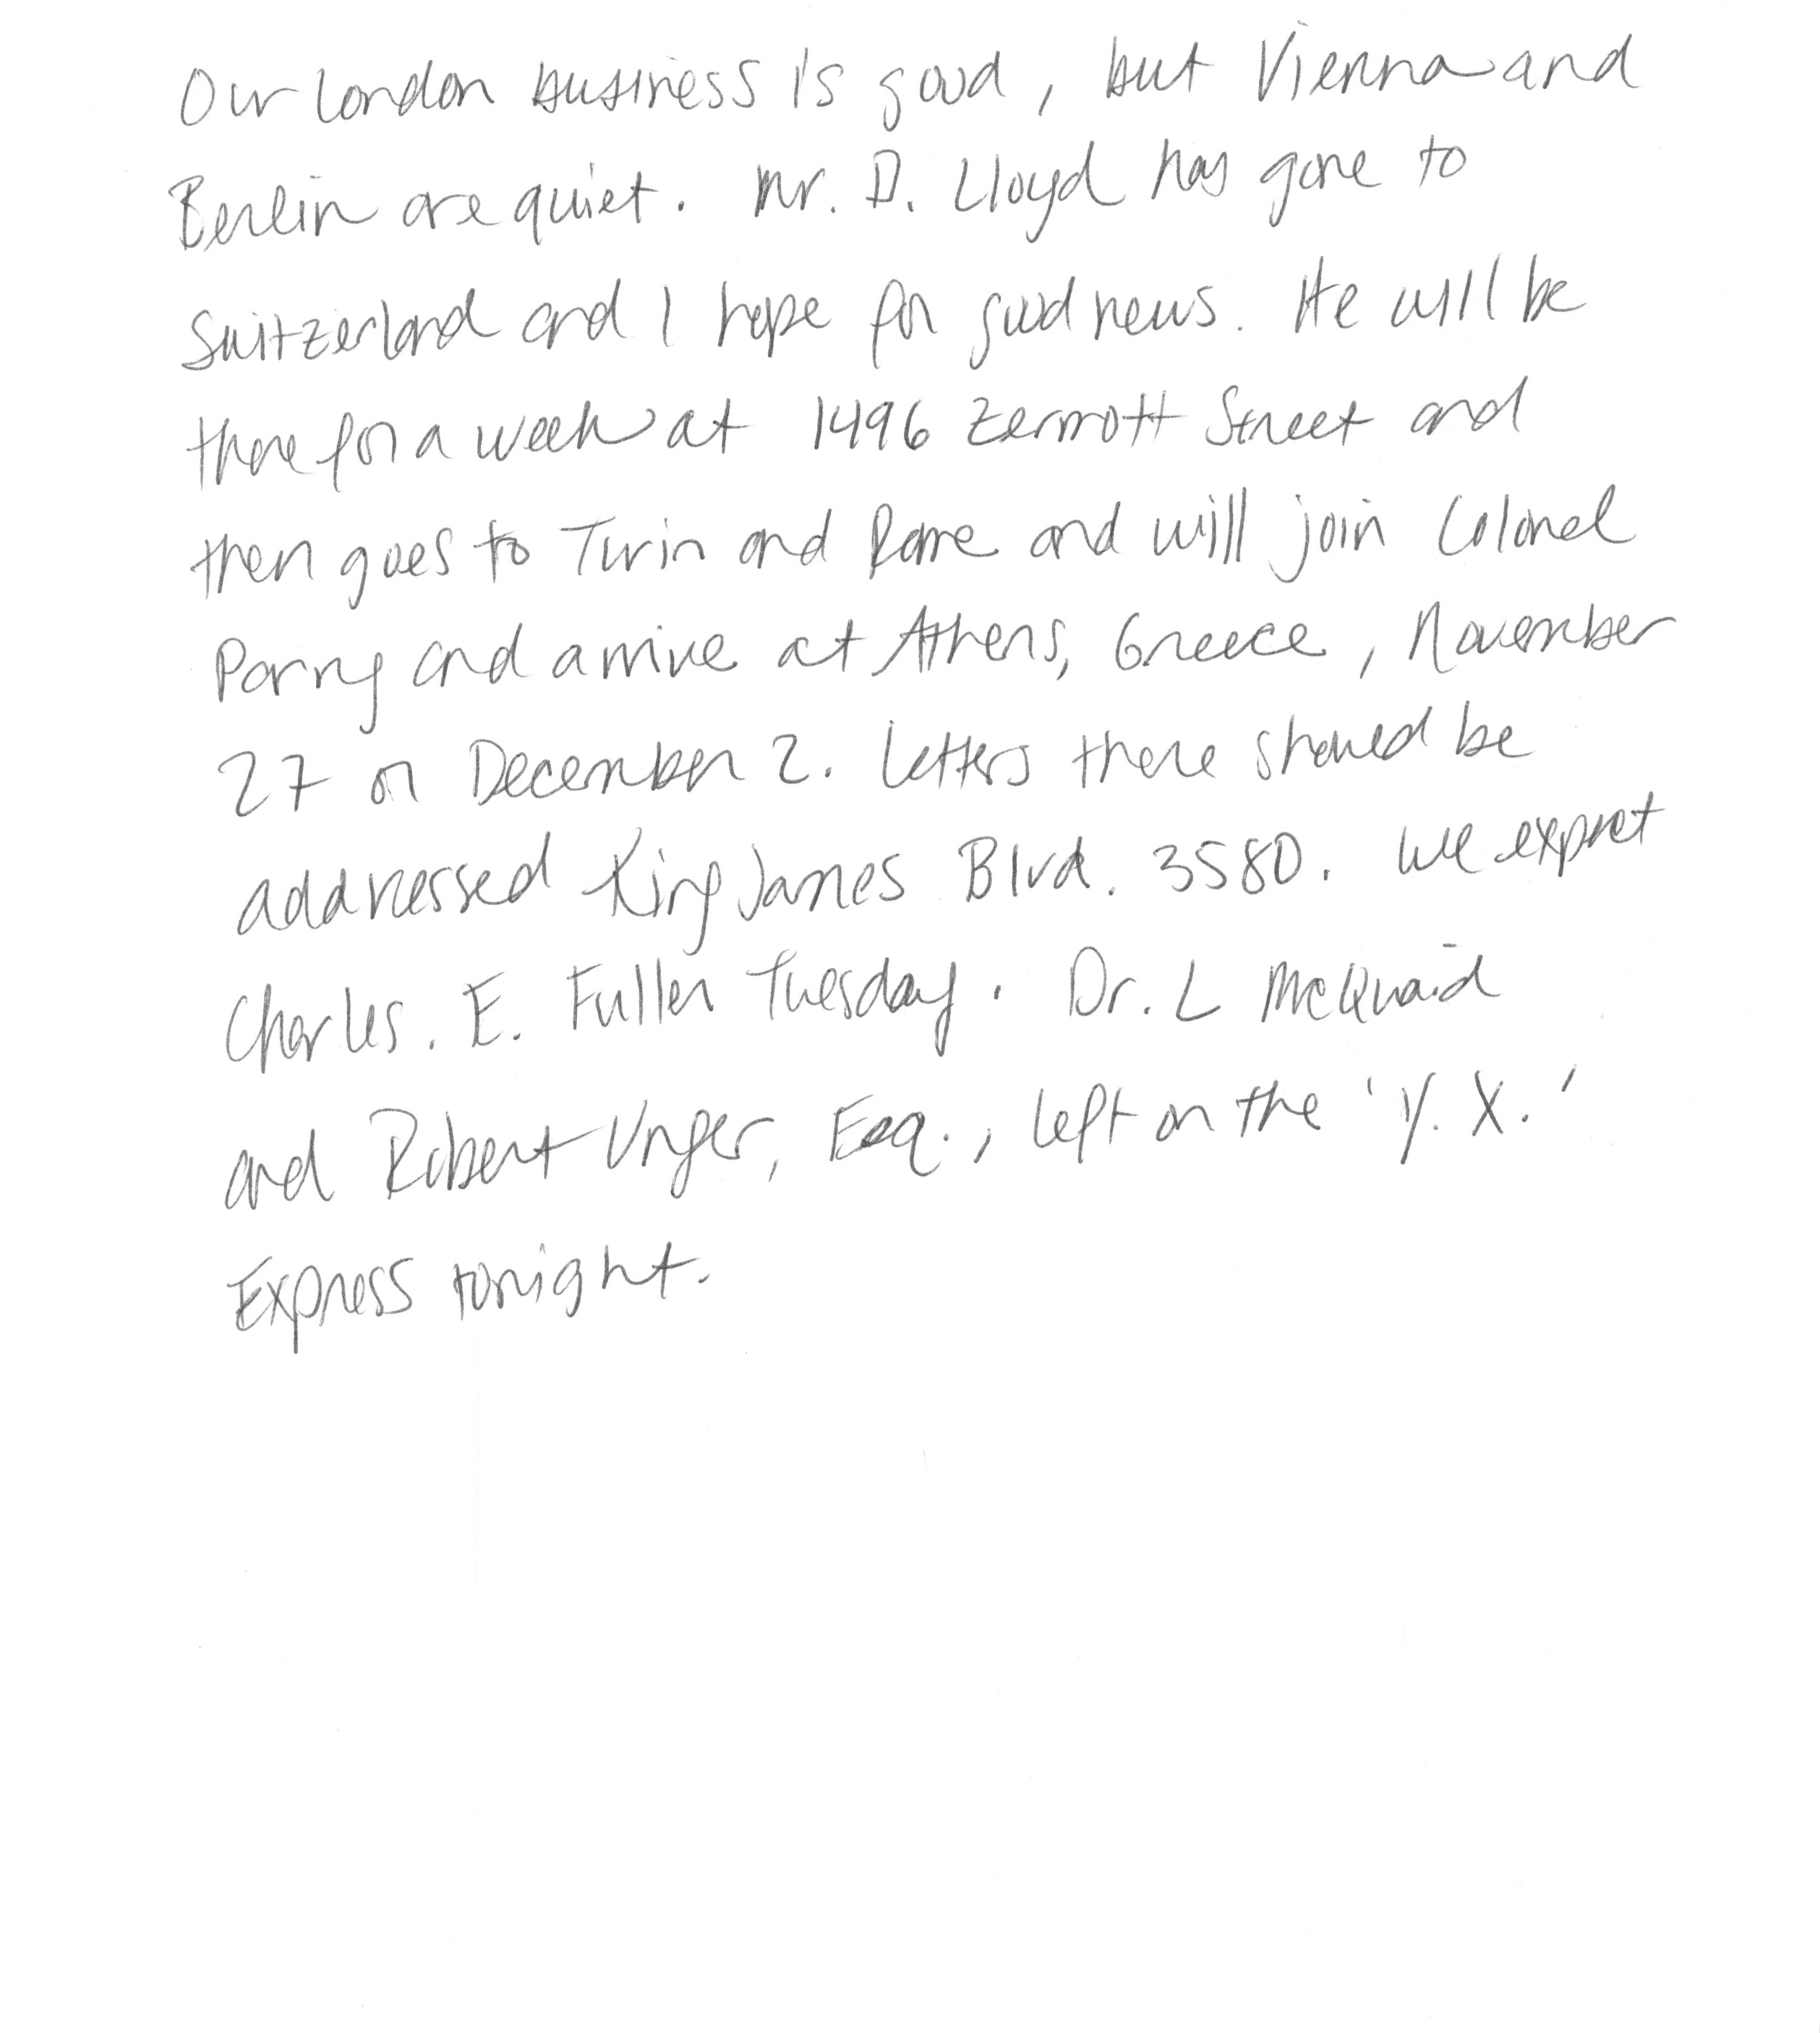 Our London business is good, but Vienna and
Berlin are quiet. Mr. D. Lloyd has gone to
Switzerland and I hope for good news. He will be
there for a week at 1496 Zermott Street and
then goes to Turin and Rome and will join Colonel
Parry and arrive at Athens, Greece, November
27 or December 2. Letters there should be
addressed King James Blvd. 3580. We expect
Charles. E. Fuller Tuesday. Dr. L McQuaid
and Robert Unger, Esq., left on the 'Y. X.'
Express tonight.